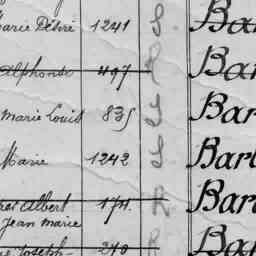 Marie Désiré 1241 S. Ba
Alphonse 497 R Ba
Marie Louis 835 S Bar
Marie 1242 S Barb
Albert 174. R Bar
Jean Marie
Joseph 240 R Ba